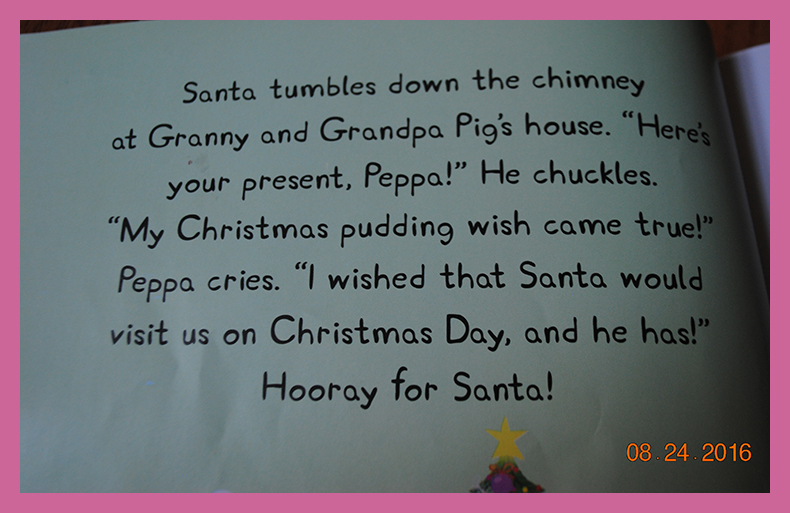 Santa tumbles down the chimney
at Granny and Grandpa Pig's house. “Here's
your present, Peppa!” He chuckles.
“My Christmas pudding wish came true!”
Peppa cries. “I wished that Santa would
visit us on Christmas Day, and he has!”
Hooray for Santa!
08.24.2016